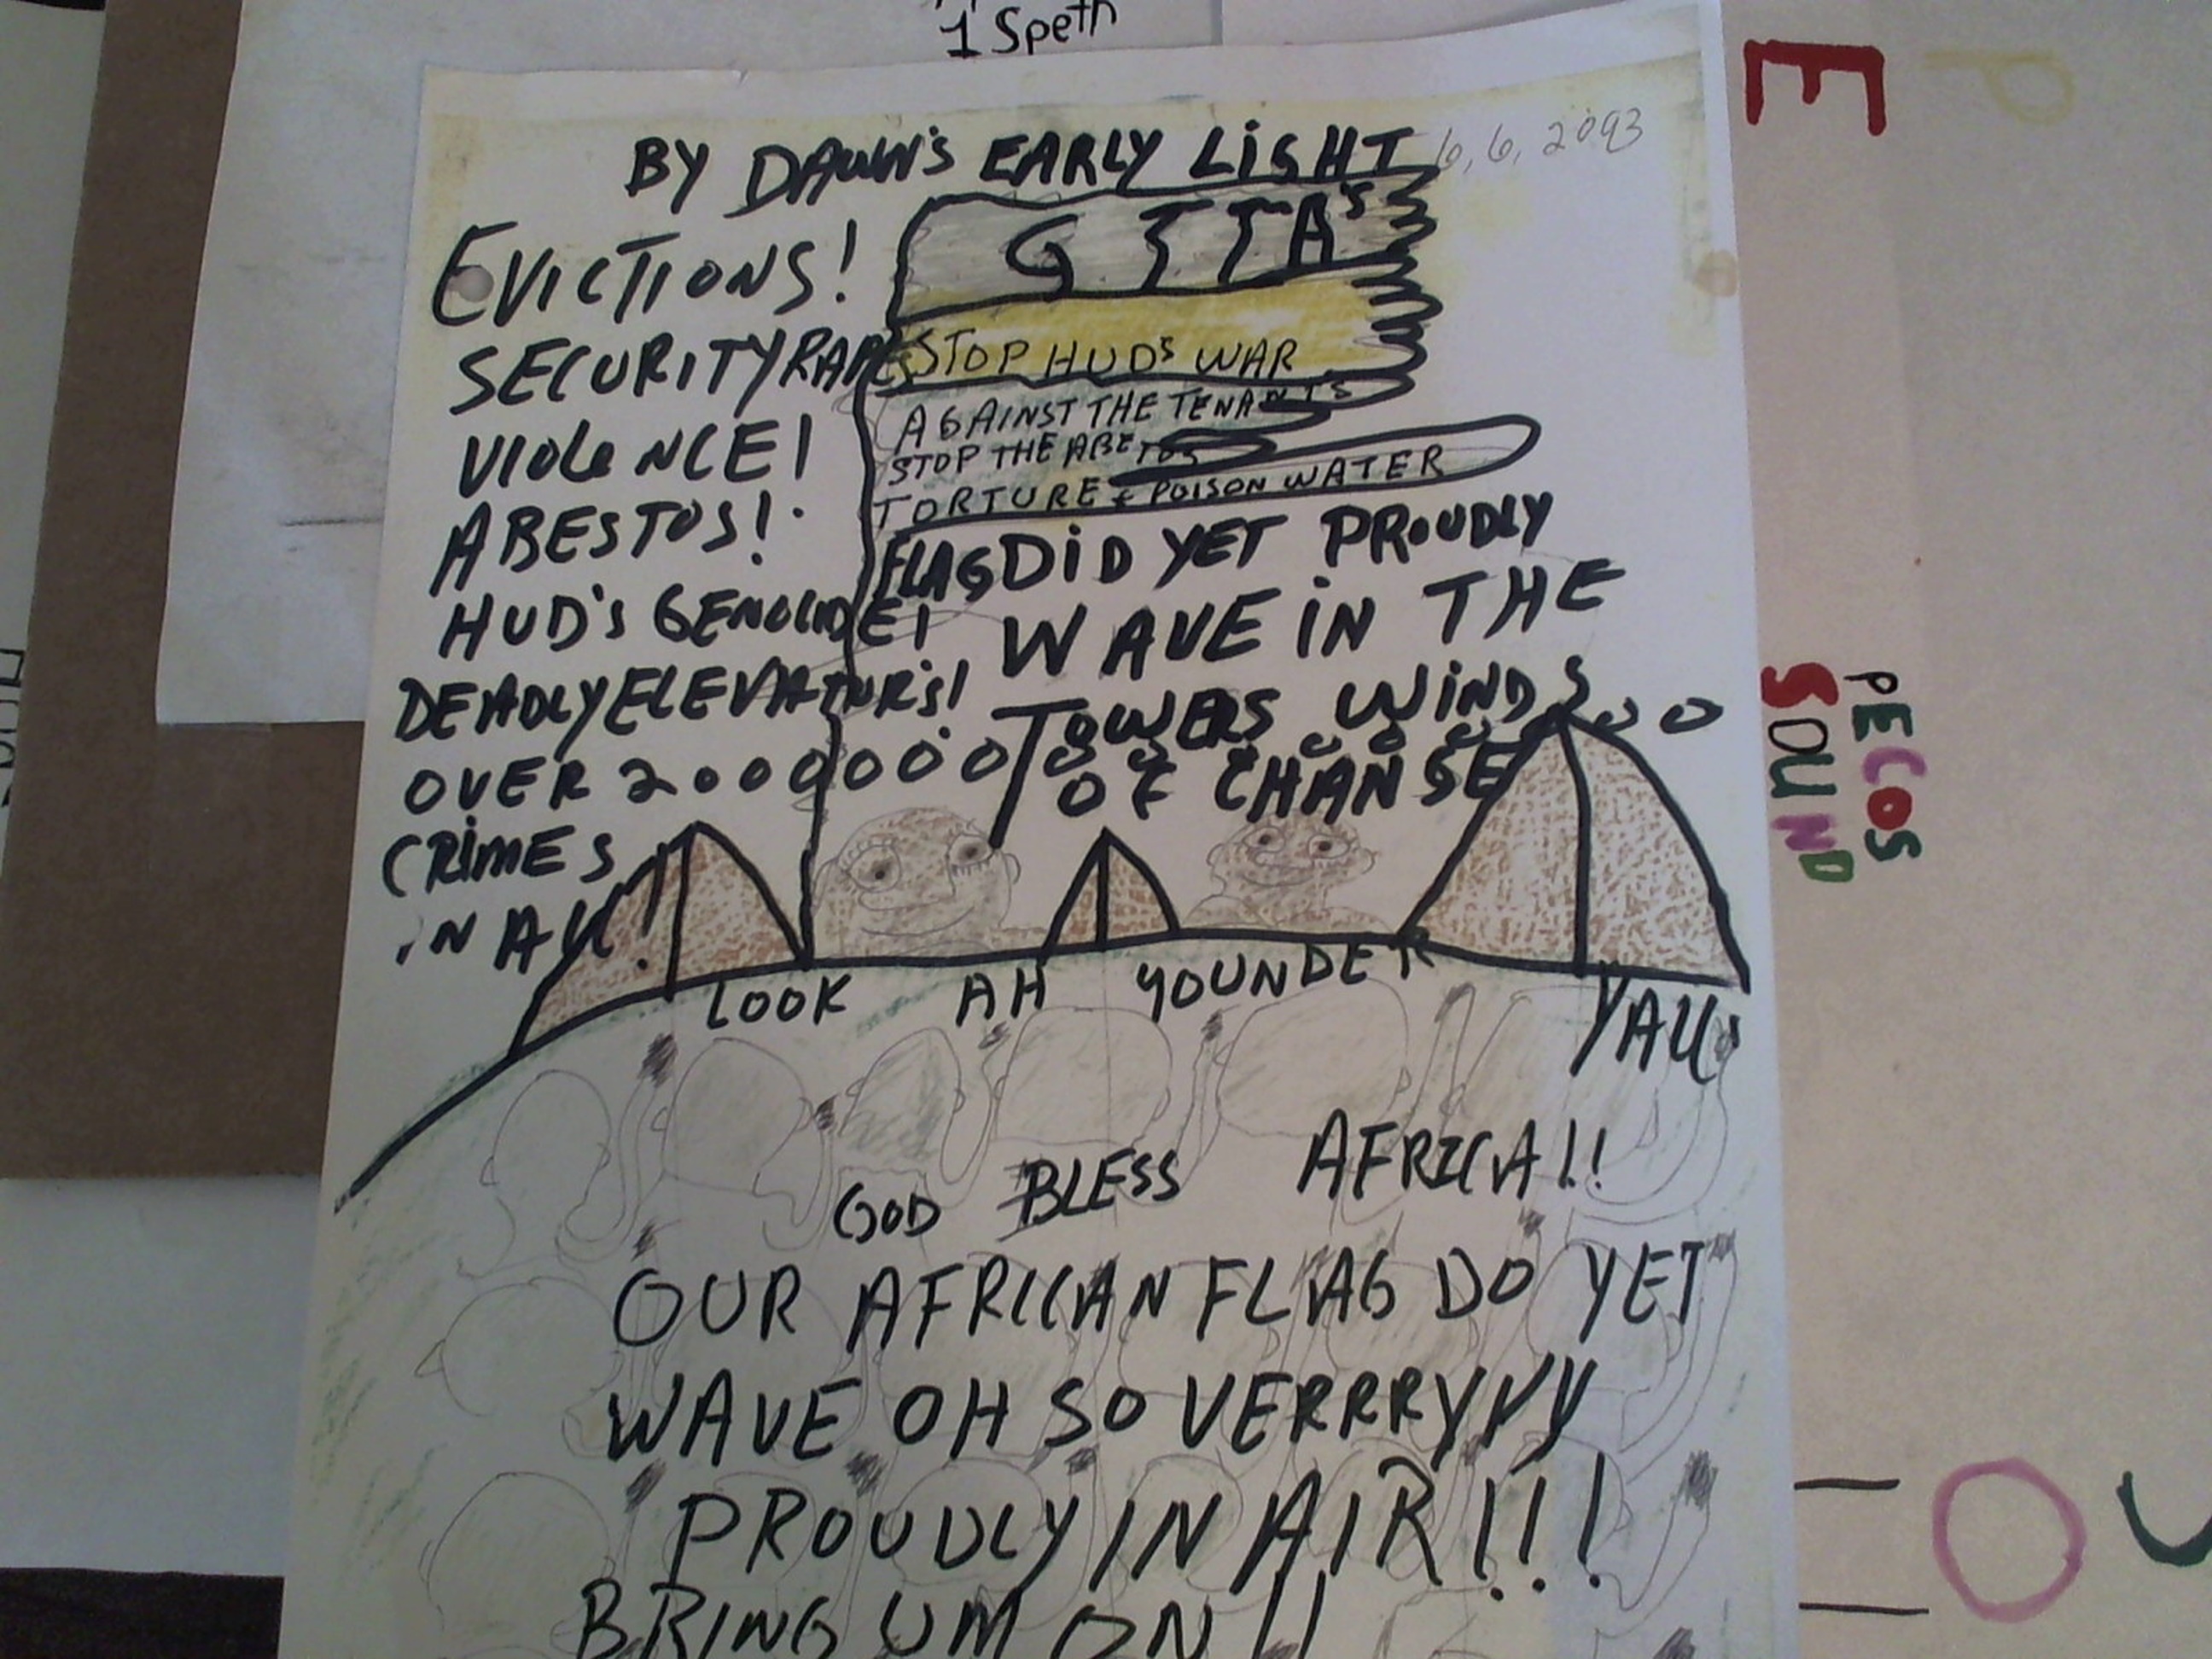 1 Speth
BY DAWN'S EARLY LIGHT
6, 6, 2093
GTTA's
EVICTIONS!
SECURITYRAPES
VIOLENCE!
ABESTOS!
HUD's GENOCIDE!
DEADLYELEVATUR'S!
OVER 2000000
CRIMES
IN ALL!
STOP HUDs WAR
AGAINST THE TENANTS
STOP THE ABETOS
TORTURE & POISON WATER
FLAG DID YET PROUDLY
WAVE IN THE
TOWERS WINDS
OF CHANGE
LOOK AH YOUNDER
YALL
GOD BLESS AFRICA!!
OUR AFRICAN FLAG DO YET
WAVE OH SO VERRRYYY
PROUDLY IN AIR!!!
BRING UM ON!!
E
P
PECOS
SOUND
O